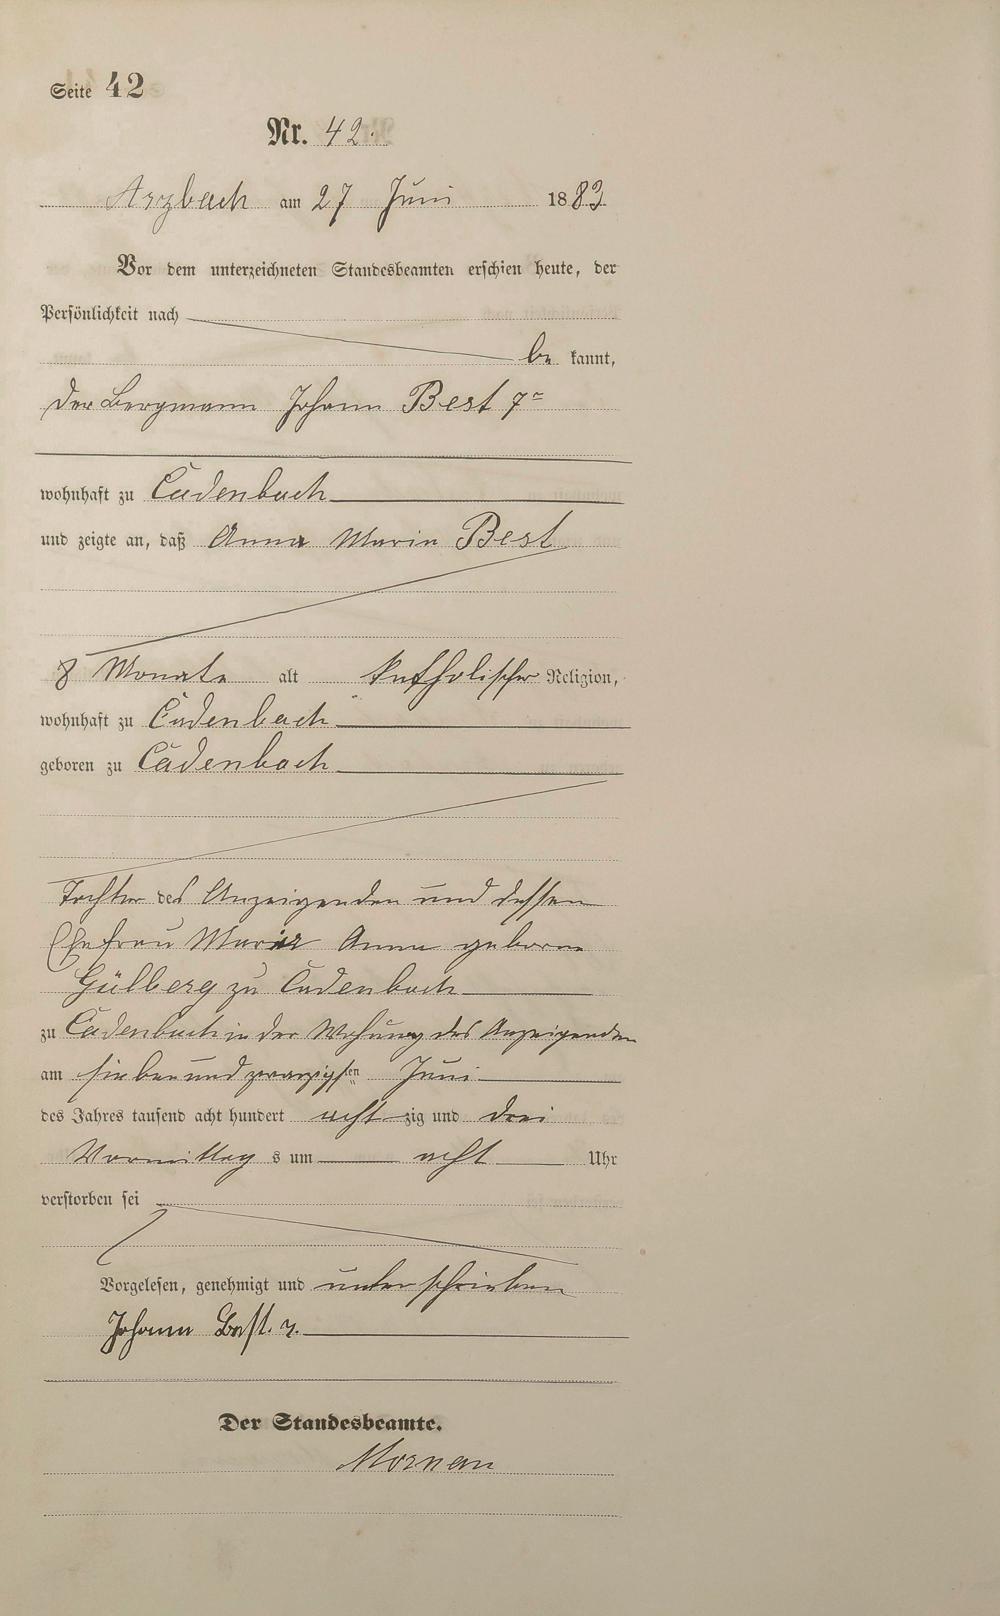 Seite 42
Nr. 42.
Arzbach am 27 Juni 1883
Vor dem unterzeichneten Standesbeamten erschien heute, der
Persönlichkeit nach
be kannt,
der Bergmann Johann Best 7r
wohnhaft zu Cadenbach
und zeigte an, daß Anna Maria Best
8 Monate alt katholischer Religion,
wohnhaft zu Cadenbach
geboren zu Cadenbach
Tochter des Anzeigenden und dessen
Ehefrau Maria Anna geborne
Gülberg zu Cadenbach
zu Cadenbach in der Wohnung des Anzeigenden
am sieben und zwanzigsten Juni
des Jahres tausend acht hundert acht zig und drei
Vormittag s um acht Uhr
verstorben sei
Vorgelesen, genehmigt und unterschrieben
Johann Best. 7.
Der Standesbeamte.